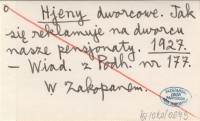 Hjeny dworcowe. Tak
się reklamuje na dworcu
nasze pensjonaty. 1927.
— Wiad. z Podh. nr 177.
W Zakopanem.